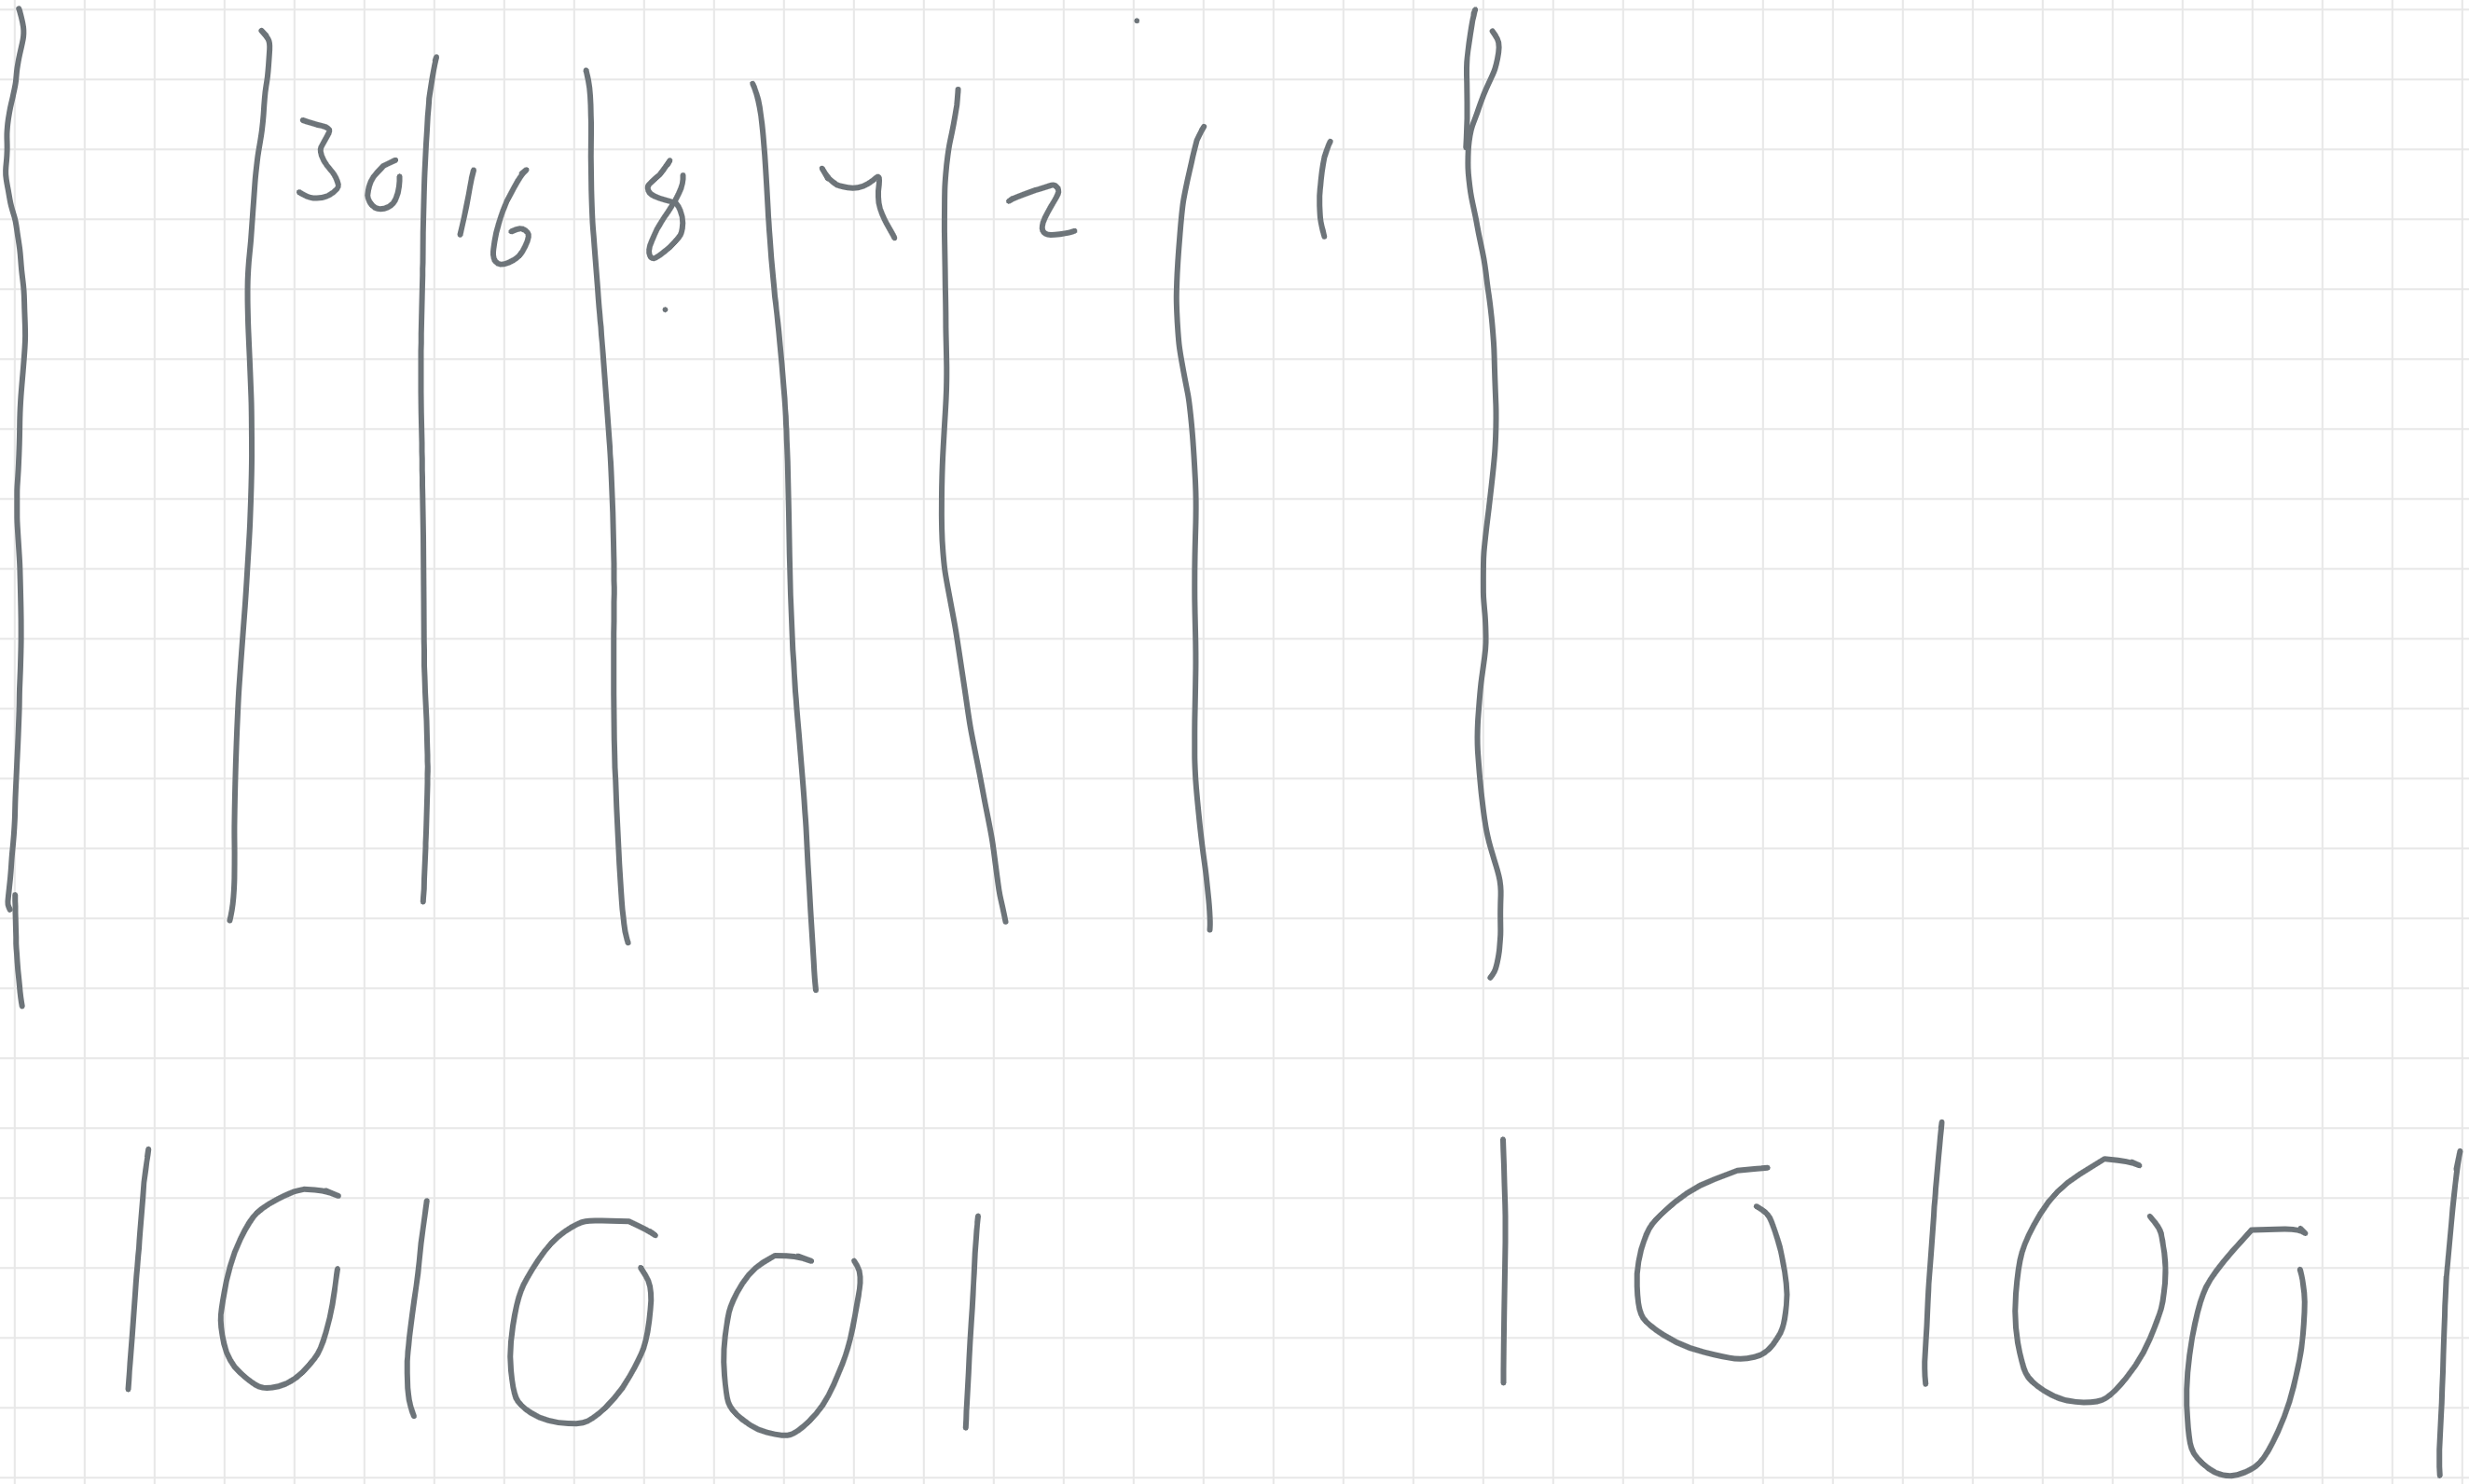 30 16 8 4 2 1
101001 101001